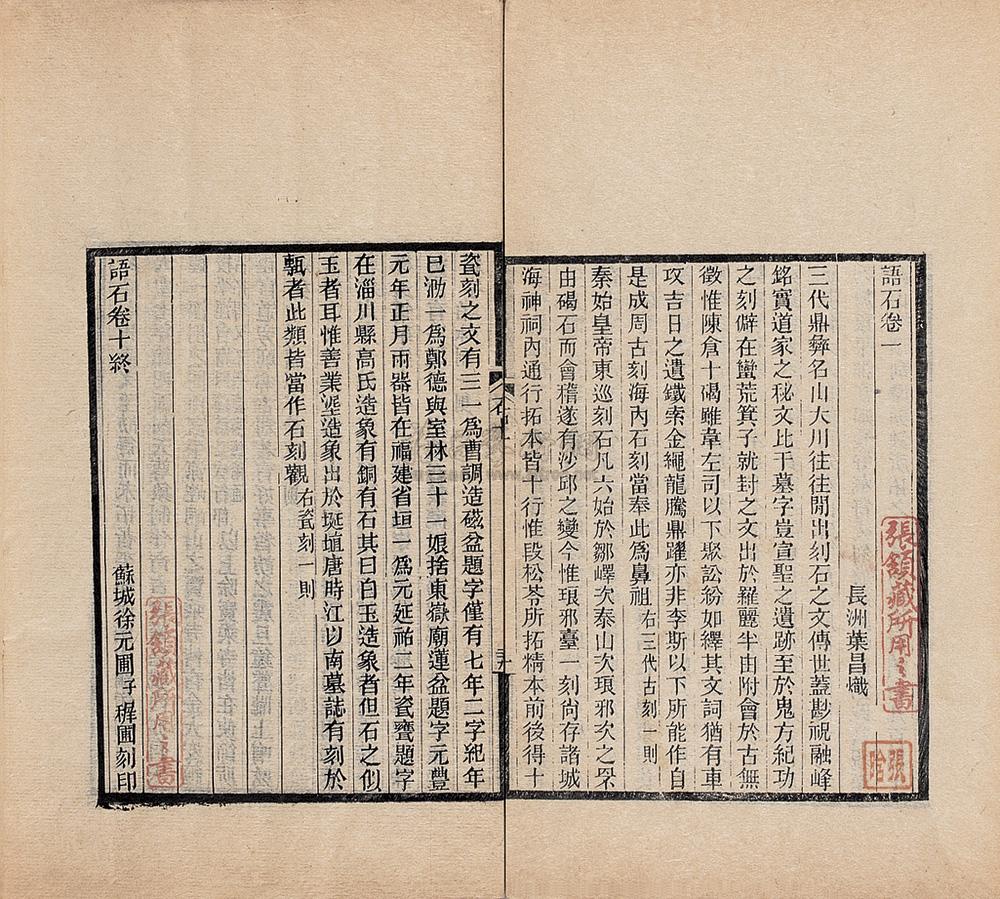 語石卷一
長洲葉昌熾
三代鼎彝名山大川往往閒出刻石之文傳世蓋尠祝融峰
銘實道家之秘文比干墓字豈宣聖之遺跡至於鬼方紀功
之刻僻在蠻荒箕子就封之文出於羅麗半由附會於古無
徵惟陳倉十碣雖韋左司以下聚訟紛如繹其文詞猶有車
攻吉日之遺鐵索金繩龍騰鼎躍亦非李斯以下所能作自
是成周古刻海內石刻當奉此爲鼻祖右三代古刻一則
秦始皇帝東巡刻石凡六始於鄒嶧次泰山次琅邪次之罘
由碣石而會稽遂有沙邱之變今惟琅邪臺一刻尙存諸城
海神祠內通行拓本皆十行惟段松苓所拓精本前後得十
張額藏所用之書
張
瓷刻之文有三一爲曹調造磁盆題字僅有七年二字紀年
已泐一爲鄭德與室林三十一娘捨東嶽廟蓮盆題字元豐
元年正月兩器皆在福建省垣一爲元延祐二年瓷甕題字
在淄川縣高氏造象有銅有石其曰白玉造象者但石之似
玉者耳惟善業埿造象出於埏埴唐時江以南墓誌有刻於
甎者此類皆當作石刻觀右瓷刻一則
語石卷十終
蘇城徐元圃子穉圃刻印
張額藏所用之書